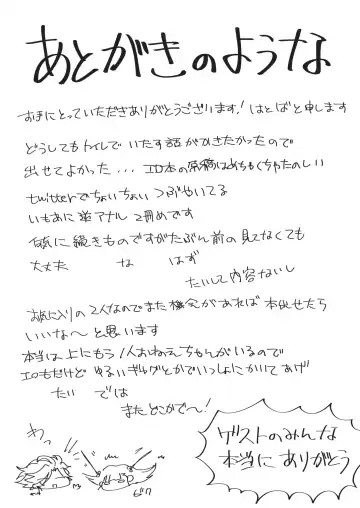 あとがきのような
お手にとっていただきありがとうございます！はとばと申します
どうしてもトイレでいたす話がかきたかったので
出せてよかった... エロ本の原稿はめちゃくちゃたのしい
twitterでちょいちょいつぶやいてる
いもあに逆アナル 2冊めです
気に続きものですがたぶん前の見てなくても
大丈夫 な はず
たいして内容ないし
お気に入りの2人なのでまた機会があれば本出せたら
いいな〜と思います
本当は上にもう1人おねえちゃんがいるので
エロもだけどゆるいギャグとかでいっしょにかいてあげ
たい では
またどこかで〜！
わっ
ビクッ
ゲストのみんな
本当にありがとう